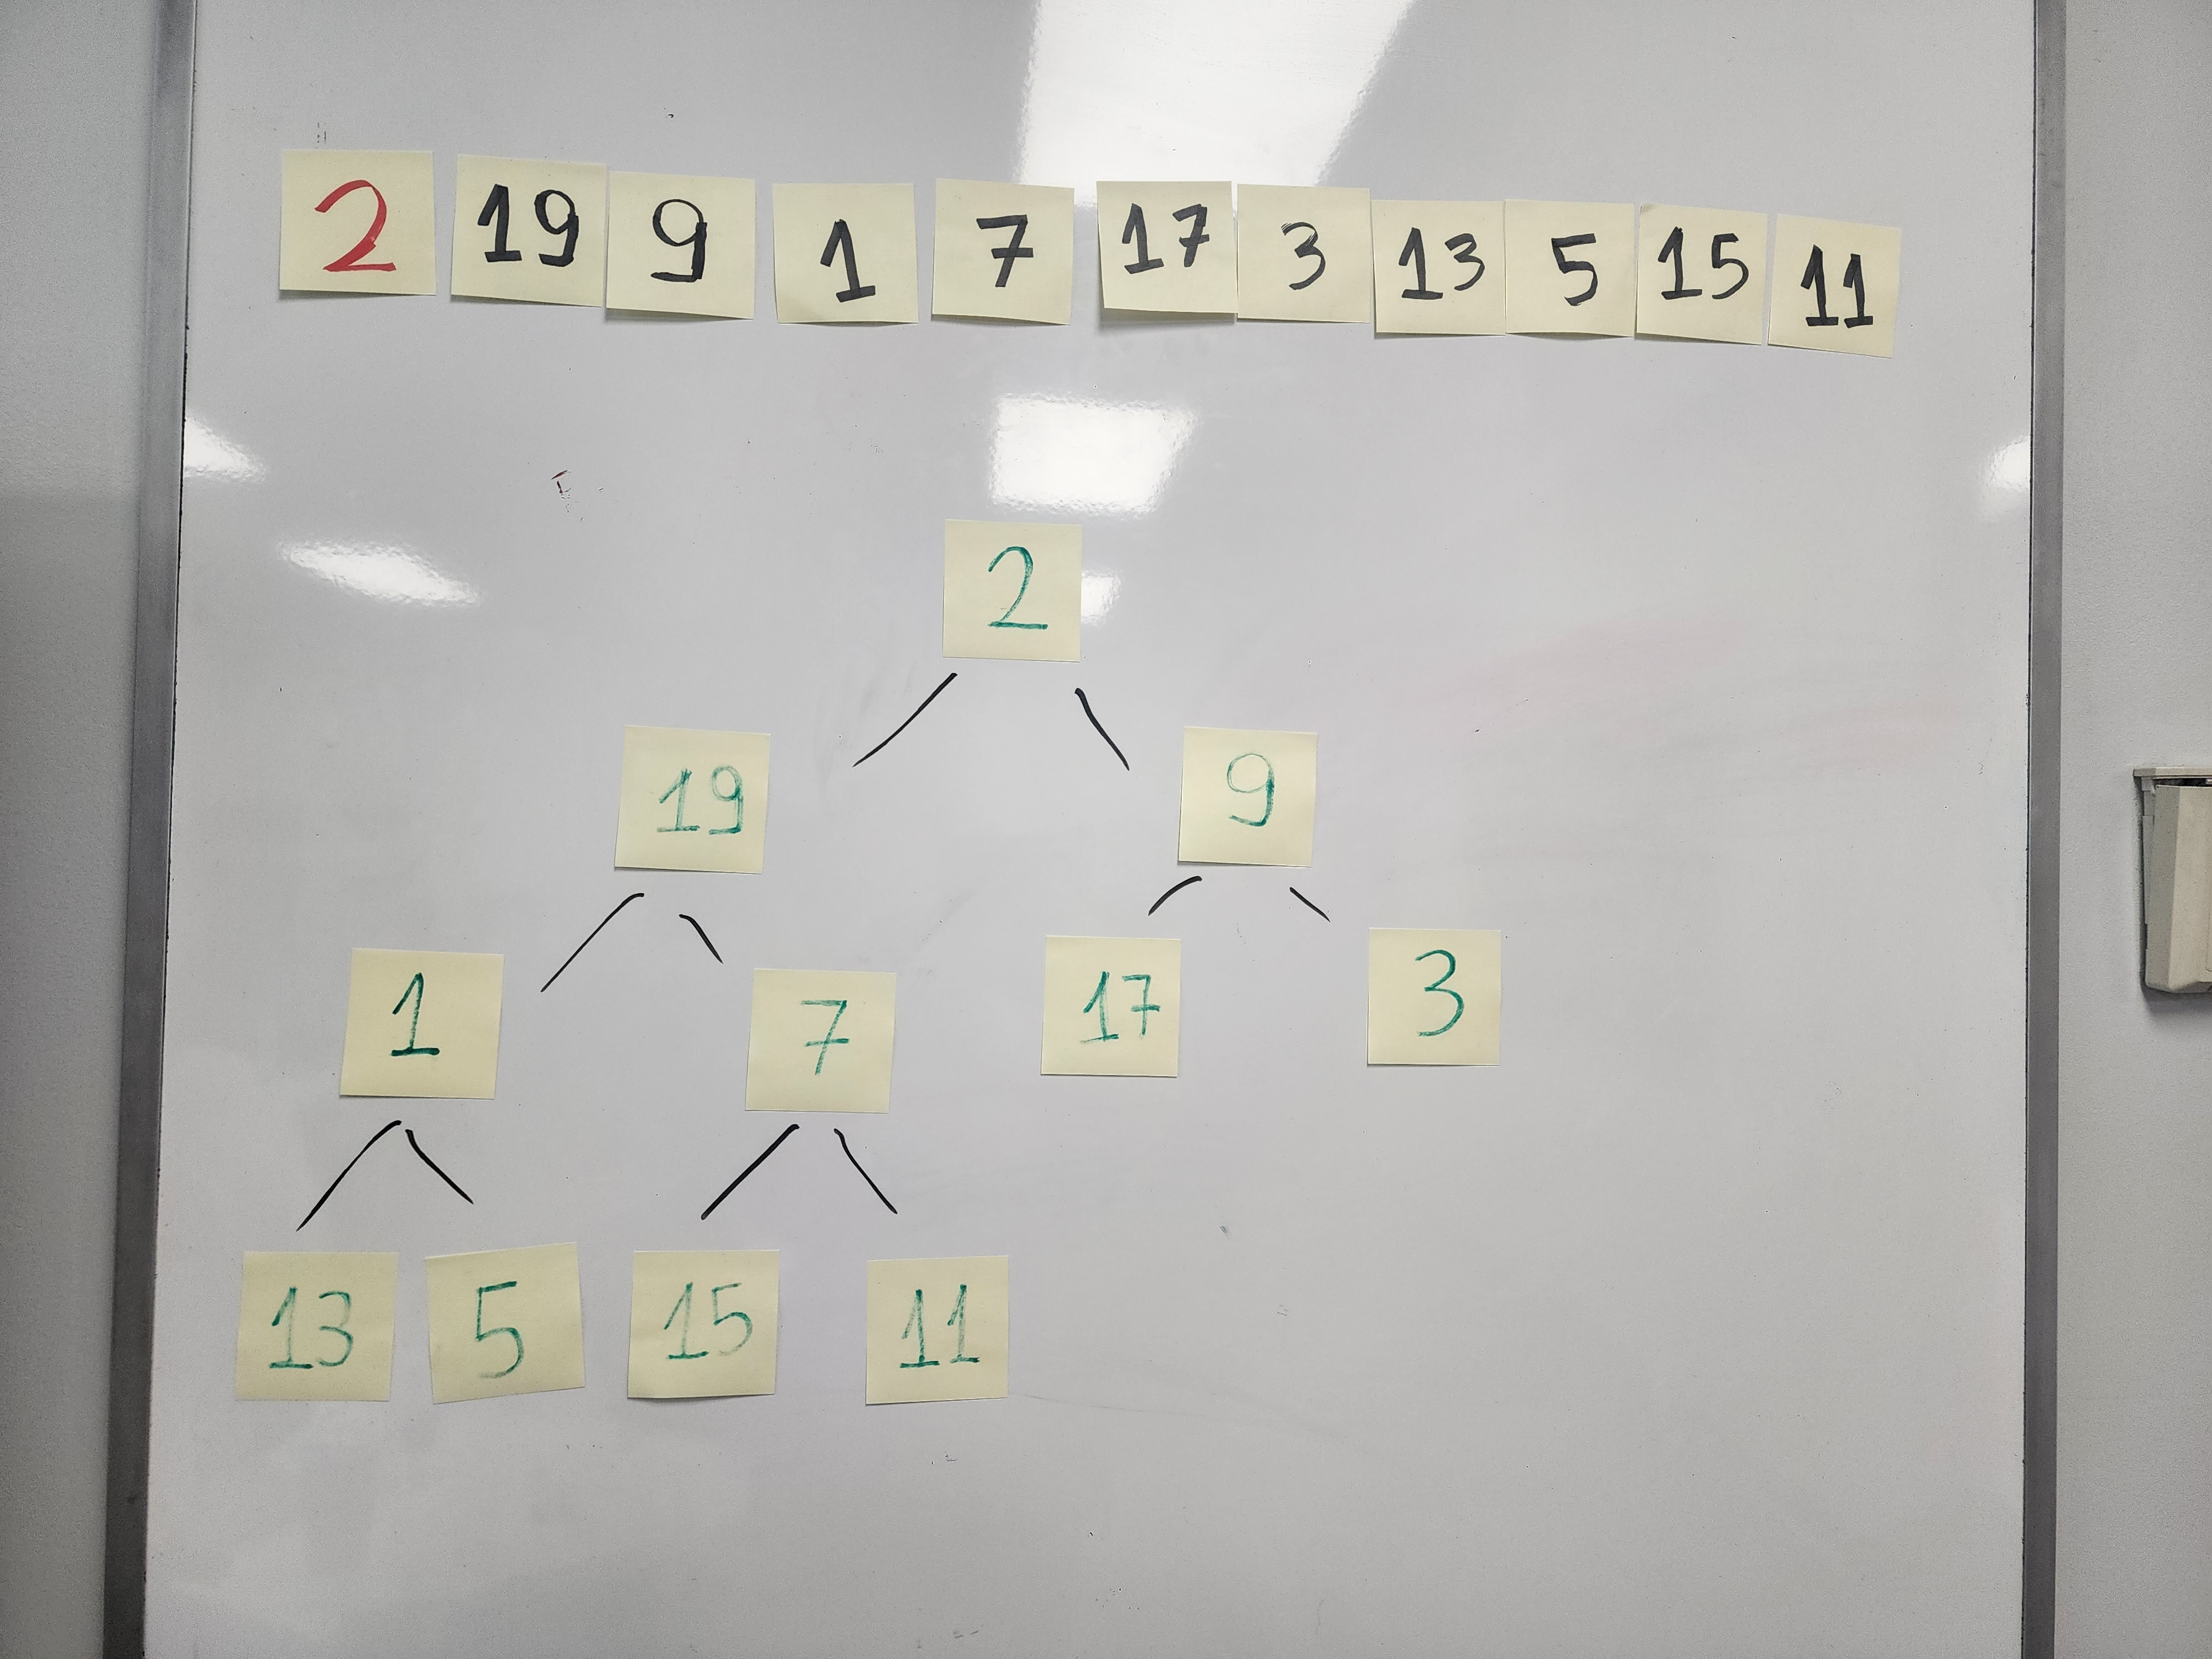 2 19 9 1 7 17 3 13 5 15 11
2
19 9
1 7 17 3
13 5 15 11